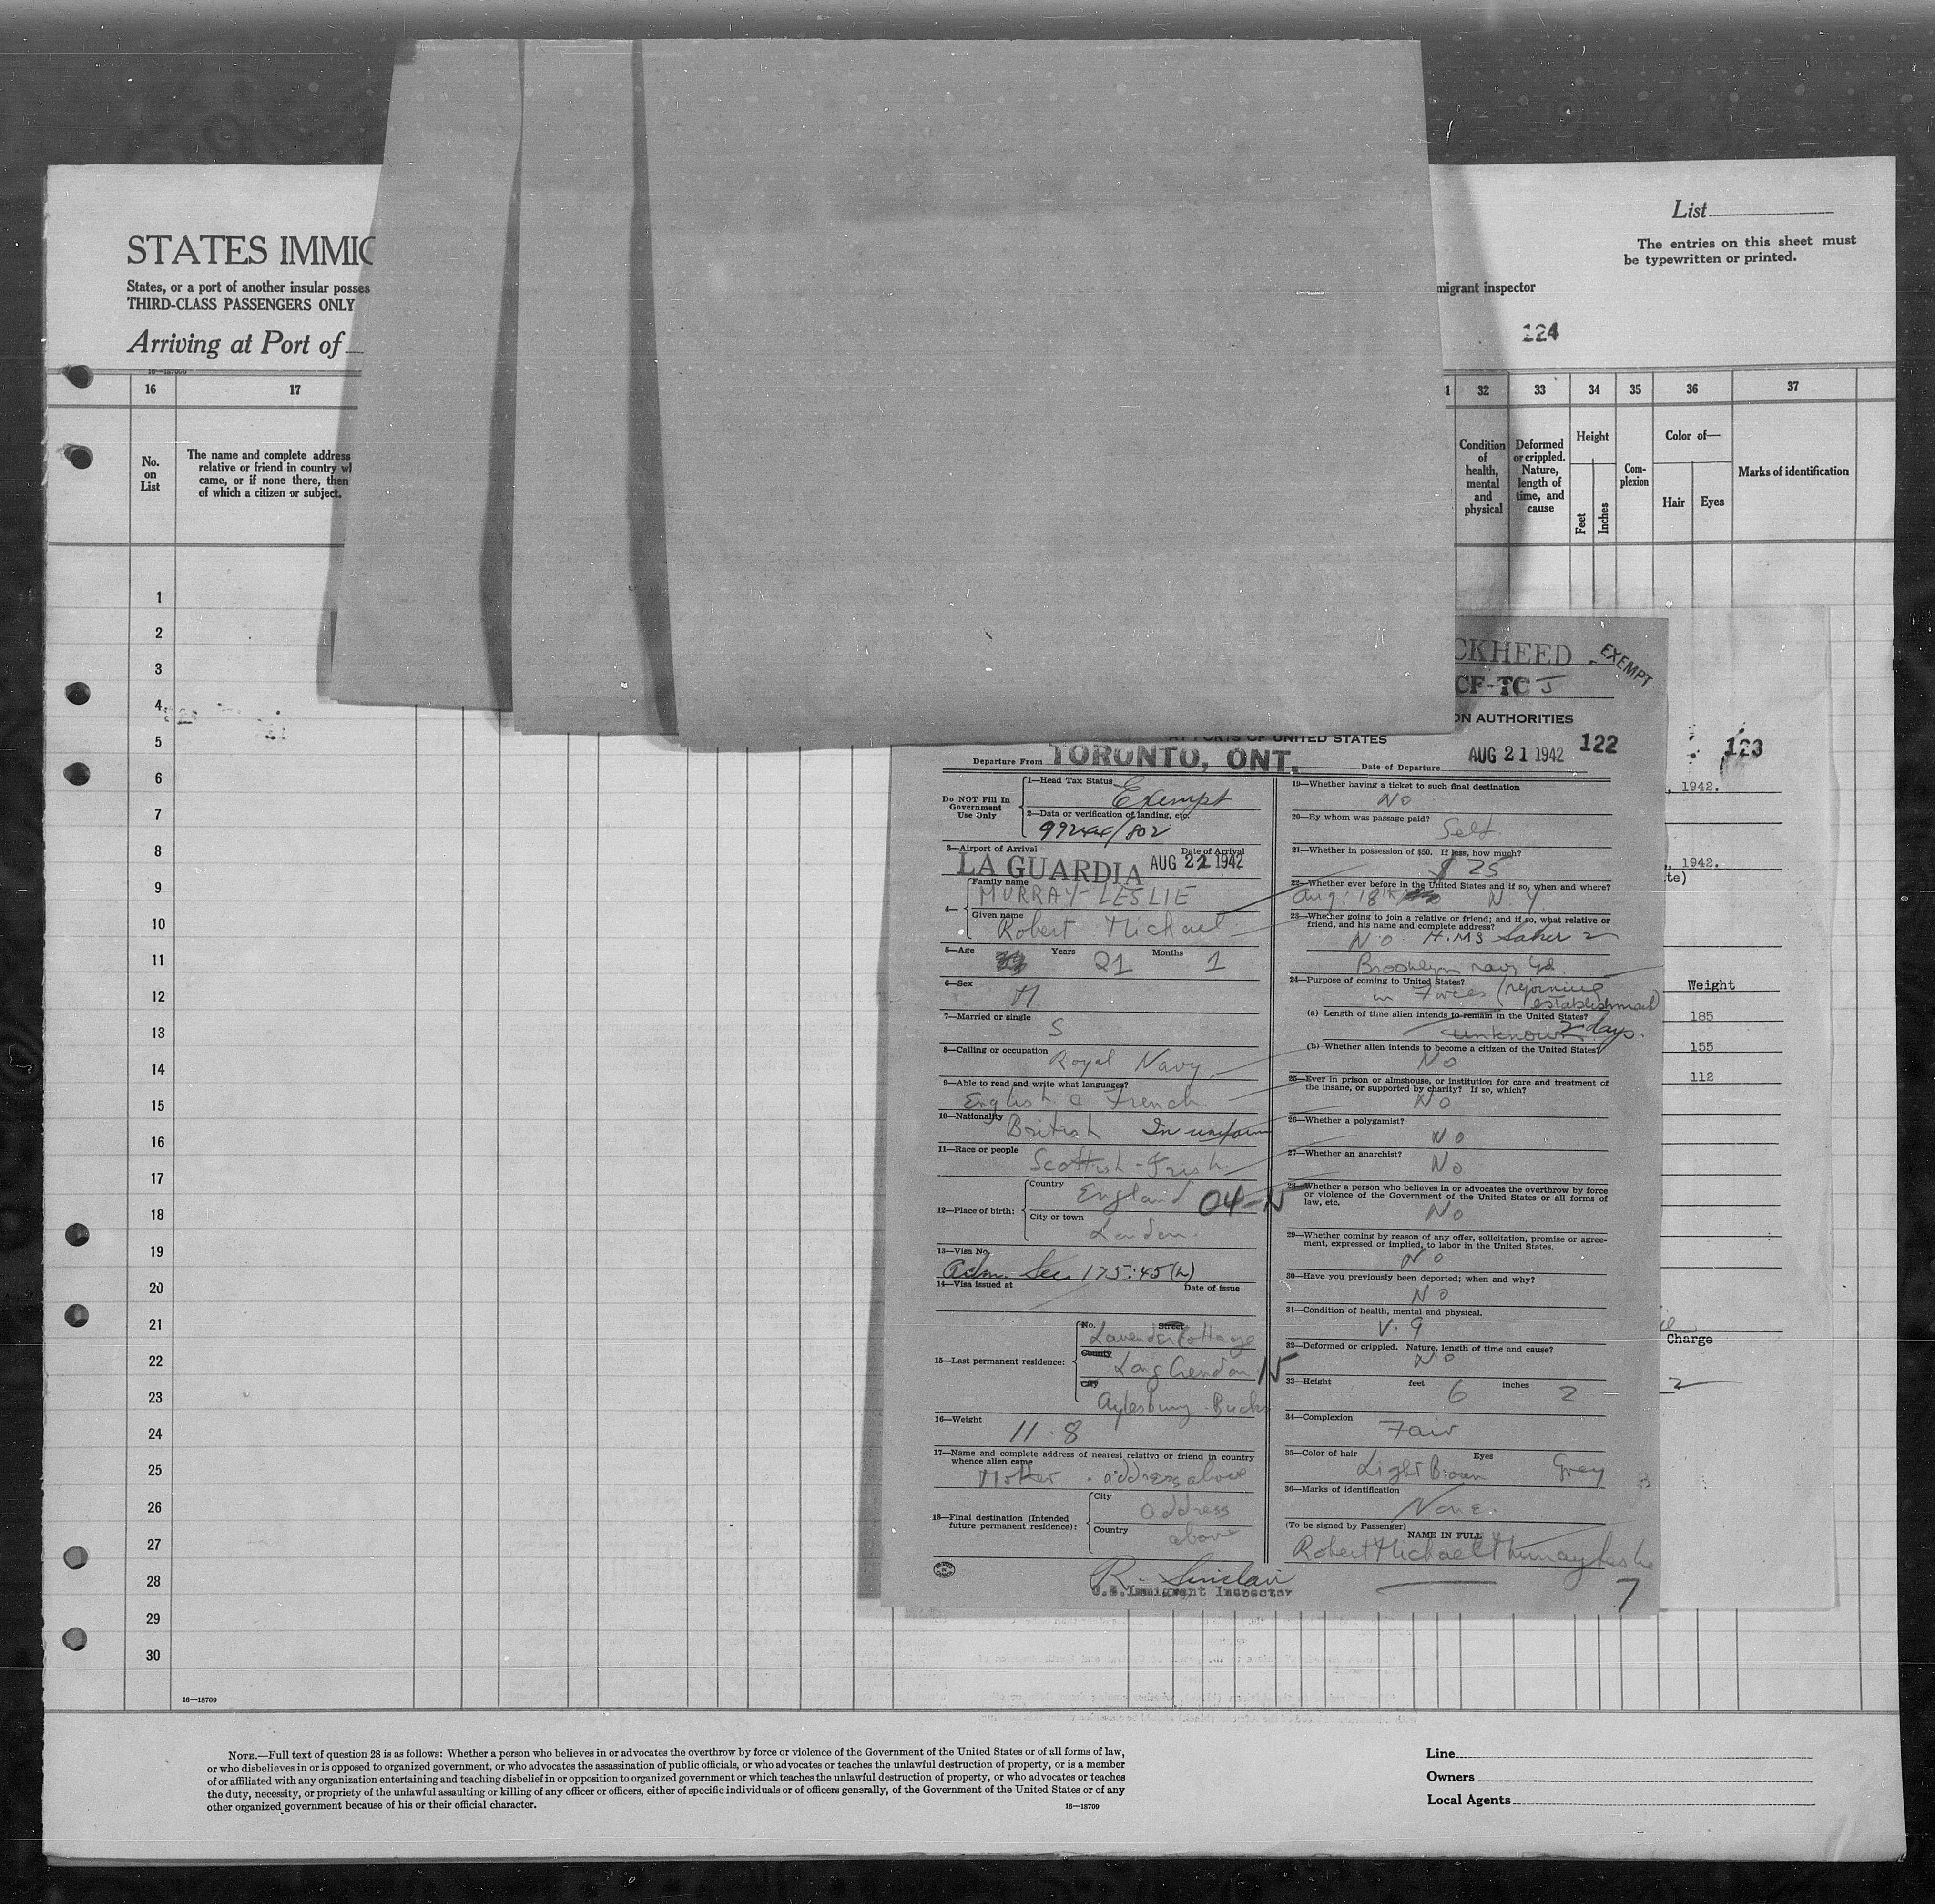 STATES IMMIG
States, or a port of another insular posses
THIRD-CLASS PASSENGERS ONLY
Arriving at Port of
List
The entries on this sheet must
be typewritten or printed.
migrant inspector
124
16 17
No.
on
List
The name and complete address
relative or friend in country wh
came, or if none there, then
of which a citizen or subject.
1 32 33 34 35 36 37
Condition
of
health,
mental
and
physical
Deformed
or crippled.
Nature,
length of
time, and
cause
Height
Feet
Inches
Com-
plexion
Color of—
Hair
Eyes
Marks of identification
1
2
3
4
5
6
7
8
9
10
11
12
13
14
15
16
17
18
19
20
21
22
23
24
25
26
27
28
29
30
16—18709
CKHEED EXEMPT
CF-TC J
ON AUTHORITIES
AT PORTS OF UNITED STATES
122
Departure From TORONTO, ONT. Date of Departure AUG 21 1942
Do NOT Fill In
Government
Use Only
1—Head Tax Status Exempt
2—Data or verification of landing, etc.
3—Airport of Arrival Date of Arrival
LA GUARDIA AUG 22 1942
4—
Family name
MURRAY-LESLIE
Given name
Robert Michael
5—Age Years 21 Months 1
6—Sex
M
7—Married or single
S
8—Calling or occupation
Royal Navy
9—Able to read and write what languages?
English & French
10—Nationality
British In uniform
11—Race or people
Scottish-Irish
12—Place of birth:
Country
England 04-N
City or town
London.
13—Visa No.
Adm. Sec. 175:45(h)
14—Visa issued at Date of issue
15—Last permanent residence:
No. Street
Lavender Cottage
County
Long Crendon N
City
Aylesbury Bucks
16—Weight
11.8
17—Name and complete address of nearest relative or friend in country
whence alien came
Mother. address above
18—Final destination (Intended
future permanent residence):
City
address
Country
above
R. Sinclair
U.S. Immigrant Inspector
19—Whether having a ticket to such final destination
No
20—By whom was passage paid?
Self.
21—Whether in possession of $50. If less, how much?
$ 25
22—Whether ever before in the United States and if so, when and where?
Aug: 18th N.Y.
23—Whether going to join a relative or friend; and if so, what relative or
friend, and his name and complete address?
No. H.M.S Saker 2
Brooklyn Navy Yd.
24—Purpose of coming to United States?
in Forces (rejoining
establishment)
(a) Length of time alien intends to remain in the United States?
unknown 2 days.
(b) Whether alien intends to become a citizen of the United States?
No
25—Ever in prison or almshouse, or institution for care and treatment of
the insane, or supported by charity? If so, which?
No
26—Whether a polygamist?
No
27—Whether an anarchist?
No
28—Whether a person who believes in or advocates the overthrow by force
or violence of the Government of the United States or all forms of
law, etc.
No
29—Whether coming by reason of any offer, solicitation, promise or agree-
ment, expressed or implied, to labor in the United States.
No
30—Have you previously been deported; when and why?
No
31—Condition of health, mental and physical.
V. g
32—Deformed or crippled. Nature, length of time and cause?
No
33—Height feet 6 inches 2
34—Complexion
Fair
35—Color of hair Eyes
Light Brown Grey
36—Marks of identification
None.
(To be signed by Passenger)
NAME IN FULL
Robert Michael Murray Leslie
7
123
, 1942.
, 1942.
te)
Weight
185
155
112
Charge
2
NOTE.—Full text of question 28 is as follows: Whether a person who believes in or advocates the overthrow by force or violence of the Government of the United States or of all forms of law,
or who disbelieves in or is opposed to organized government, or who advocates the assassination of public officials, or who advocates or teaches the unlawful destruction of property, or is a member
of or affiliated with any organization entertaining and teaching disbelief in or opposition to organized government or which teaches the unlawful destruction of property, or who advocates or teaches
the duty, necessity, or propriety of the unlawful assaulting or killing of any officer or officers, either of specific individuals or of officers generally, of the Government of the United States or of any
other organized government because of his or their official character.
16—18709
Line
Owners
Local Agents